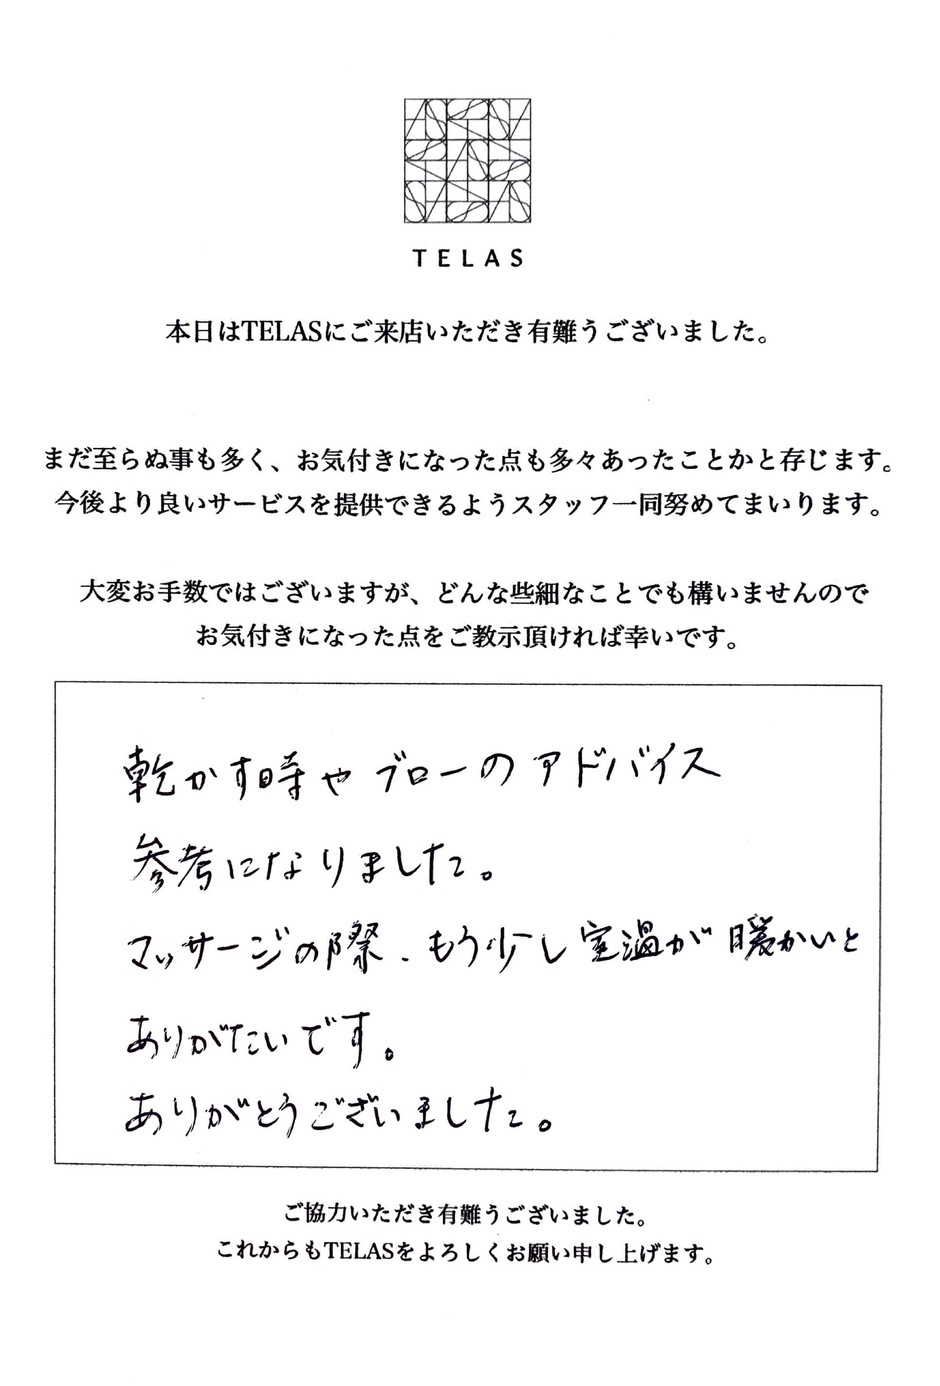 TELAS
本日はTELASにご来店いただき有難うございました。
まだ至らぬ事も多く、お気付きになった点も多々あったことかと存じます。
今後より良いサービスを提供できるようスタッフ一同努めてまいります。
大変お手数ではございますが、どんな些細なことでも構いませんので
お気付きになった点をご教示頂ければ幸いです。
乾かす時やブローのアドバイス
参考になりました。
マッサージの際、もう少し室温が暖かいと
ありがたいです。
ありがとうございました。
ご協力いただき有難うございました。
これからもTELASをよろしくお願い申し上げます。